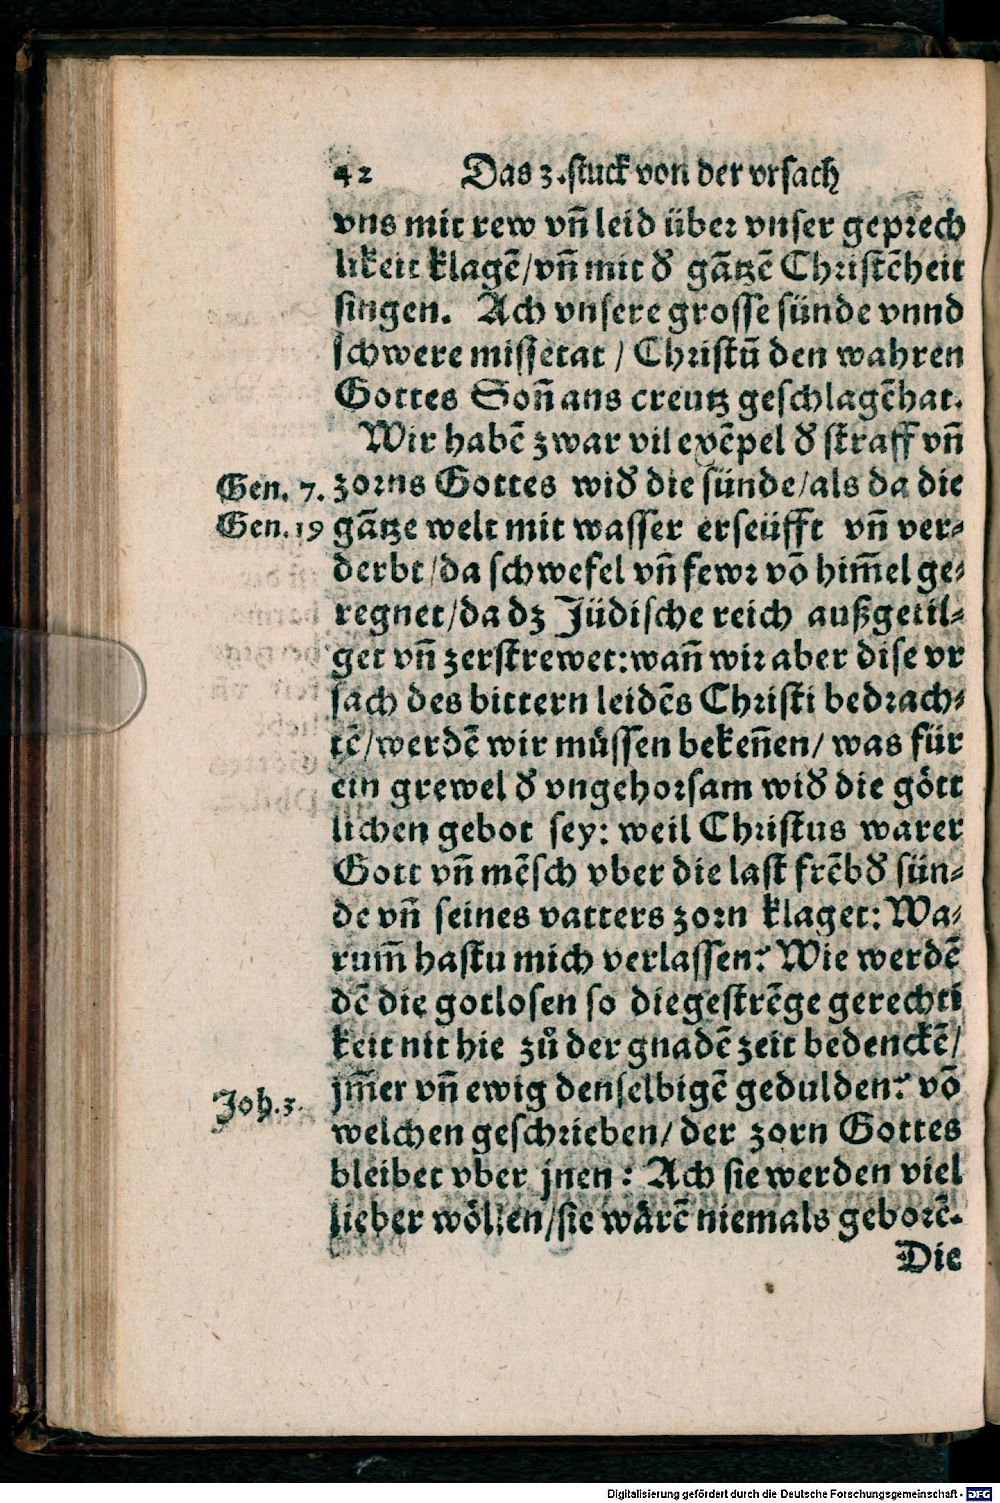 42 Das 3.stuck von der vrsach
vns mit rew vn̄ leid über vnser geprech
likeit klagē/vn̄ mit d̕ gātzē Christēheit
singen. Ach vnsere grosse sünde vnnd
schwere missetat / Christū den wahren
Gottes Son̄ ans creutz geschlagē hat.
Wir habē zwar vil exēpel d̕ straff vn̄
Gen. 7. zorns Gottes wid̕ die sünde/als da die
Gen. 19 gātze welt mit wasser erseüfft vn̄ ver⸗
derbt/da schwefel vn̄ fewr vō him̄el ge⸗
regnet/da dz Jüdische reich außgetil⸗
get vn̄ zerstrewet:wan̄ wir aber dise vr
sach des bittern leidēs Christi bedrach⸗
tē/werdē wir müssen beken̄en/ was für
ein grewel d̕ vngehorsam wid̕ die gött
lichen gebot sey: weil Christus warer
Gott vn̄ mēsch vber die last frēbd̕ sün⸗
de vn̄ seines vatters zorn klaget: Wa⸗
rum̄ hastu mich verlassen? Wie werdē
dē die gotlosen so die gestrēge gerechti
keit nit hie zů der gnadē zeit bedenckē/
jm̄er vn̄ ewig denselbigē gedulden? vō
Joh. 3. welchen geschrieben/ der zorn Gottes
bleibet vber jnen : Ach sie werden viel
lieber wöllen/sie wärē niemals geborē.
Die
Digitalisierung gefördert durch die Deutsche Forschungsgemeinschaft - DFG